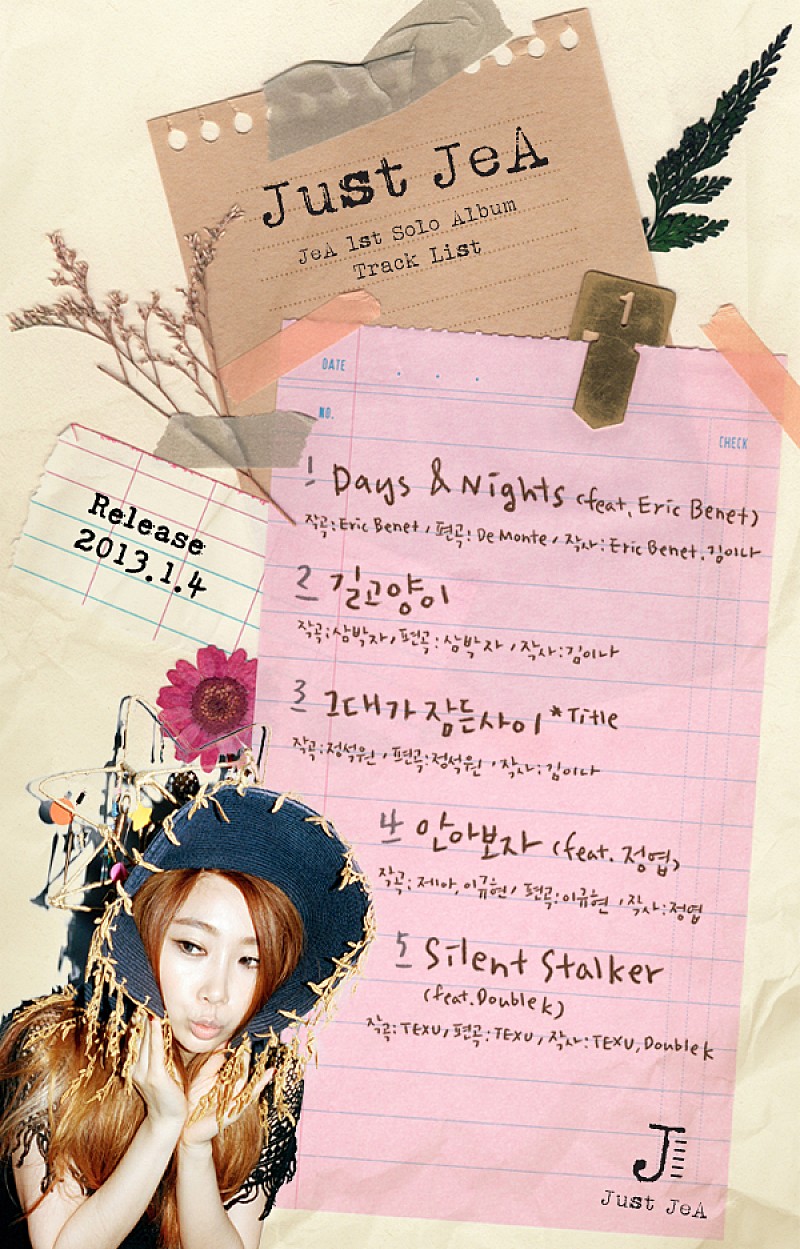 Just JeA
JeA 1st Solo Album
Track List
1
DATE
NO.
CHECK
Release
2013.1.4
1 Days & Nights (feat. Eric Benet)
작곡: Eric Benet / 편곡: De Monte / 작사: Eric Benet, 김이나
2 길고양이
작곡: 삼박자 / 편곡: 삼박자 / 작사: 김이나
3 그대가 잠든사이 *Title
작곡: 정석원 / 편곡: 정석원 / 작사: 김이나
4 안아보자 (feat. 정엽)
작곡: 제아, 이규현 / 편곡: 이규현 / 작사: 정엽
5 Silent Stalker
(feat. Double K)
작곡: TEXU / 편곡: TEXU / 작사: TEXU, Double K
J
Just JeA